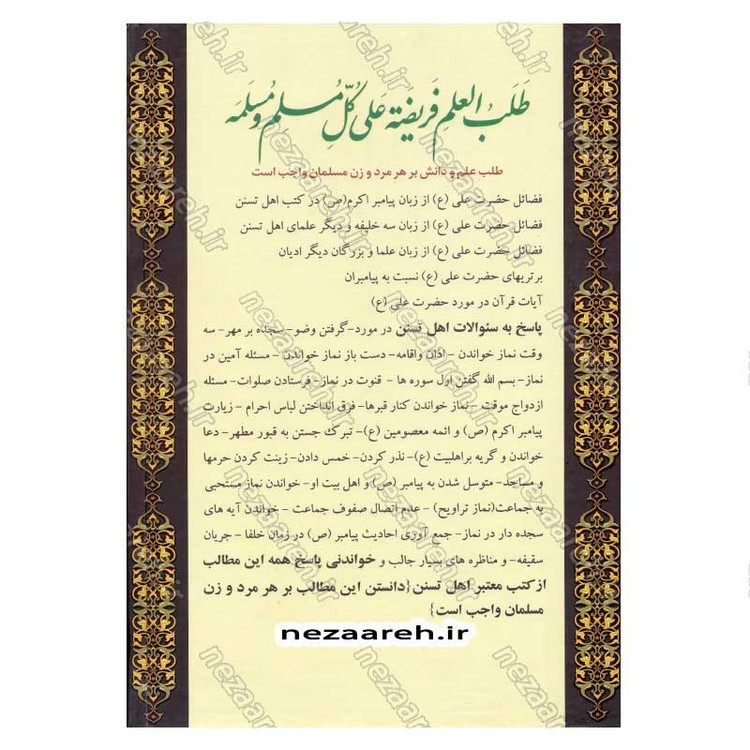 طَلَبُ العِلمِ فَریضَة عَلی کُلِّ مُسلِمٍ و مُسلِمَه
طلب علم و دانش بر هر مرد و زن مسلمان واجب است
فضائل حضرت علی (ع) از زبان پیامبر اکرم(ص) در کتب اهل تسنن
فضائل حضرت علی (ع) از زبان سه خلیفه و دیگر علمای اهل تسنن
فضائل حضرت علی (ع) از زبان علما و بزرگان دیگر ادیان
برتریهای حضرت علی (ع) نسبت به پیامبران
آیات قرآن در مورد حضرت علی (ع)
پاسخ به سئوالات اهل تسنن در مورد-گرفتن وضو- سجده بر مهر- سه
وقت نماز خواندن -اذان واقامه- دست باز نماز خواندن - مسئله آمین در
نماز- بسم الله گفتن اول سوره ها - قنوت در نماز- فرستادن صلوات- مسئله
ازدواج موقت - نماز خواندن کنار قبرها- فرق انداختن لباس احرام - زیارت
پیامبر اکرم (ص) و ائمه معصومین (ع)- تبرک جستن به قبور مطهر- دعا
خواندن و گریه براهلبیت (ع)- نذر کردن- خمس دادن- زینت کردن حرمها
و مساجد- متوسل شدن به پیامبر (ص) و اهل بیت او- خواندن نماز مستحبی
به جماعت(نماز تراویح) - عدم اتصال صفوف جماعت - خواندن آیه های
سجده دار در نماز- جمع آوری احادیث پیامبر (ص) در زمان خلفا - جریان
سقیفه- و مناظره های بسیار جالب و خواندنی پاسخ همه این مطالب
از کتب معتبر اهل تسنن{دانستن این مطالب بر هر مرد و زن
مسلمان واجب است}
nezaareh.ir